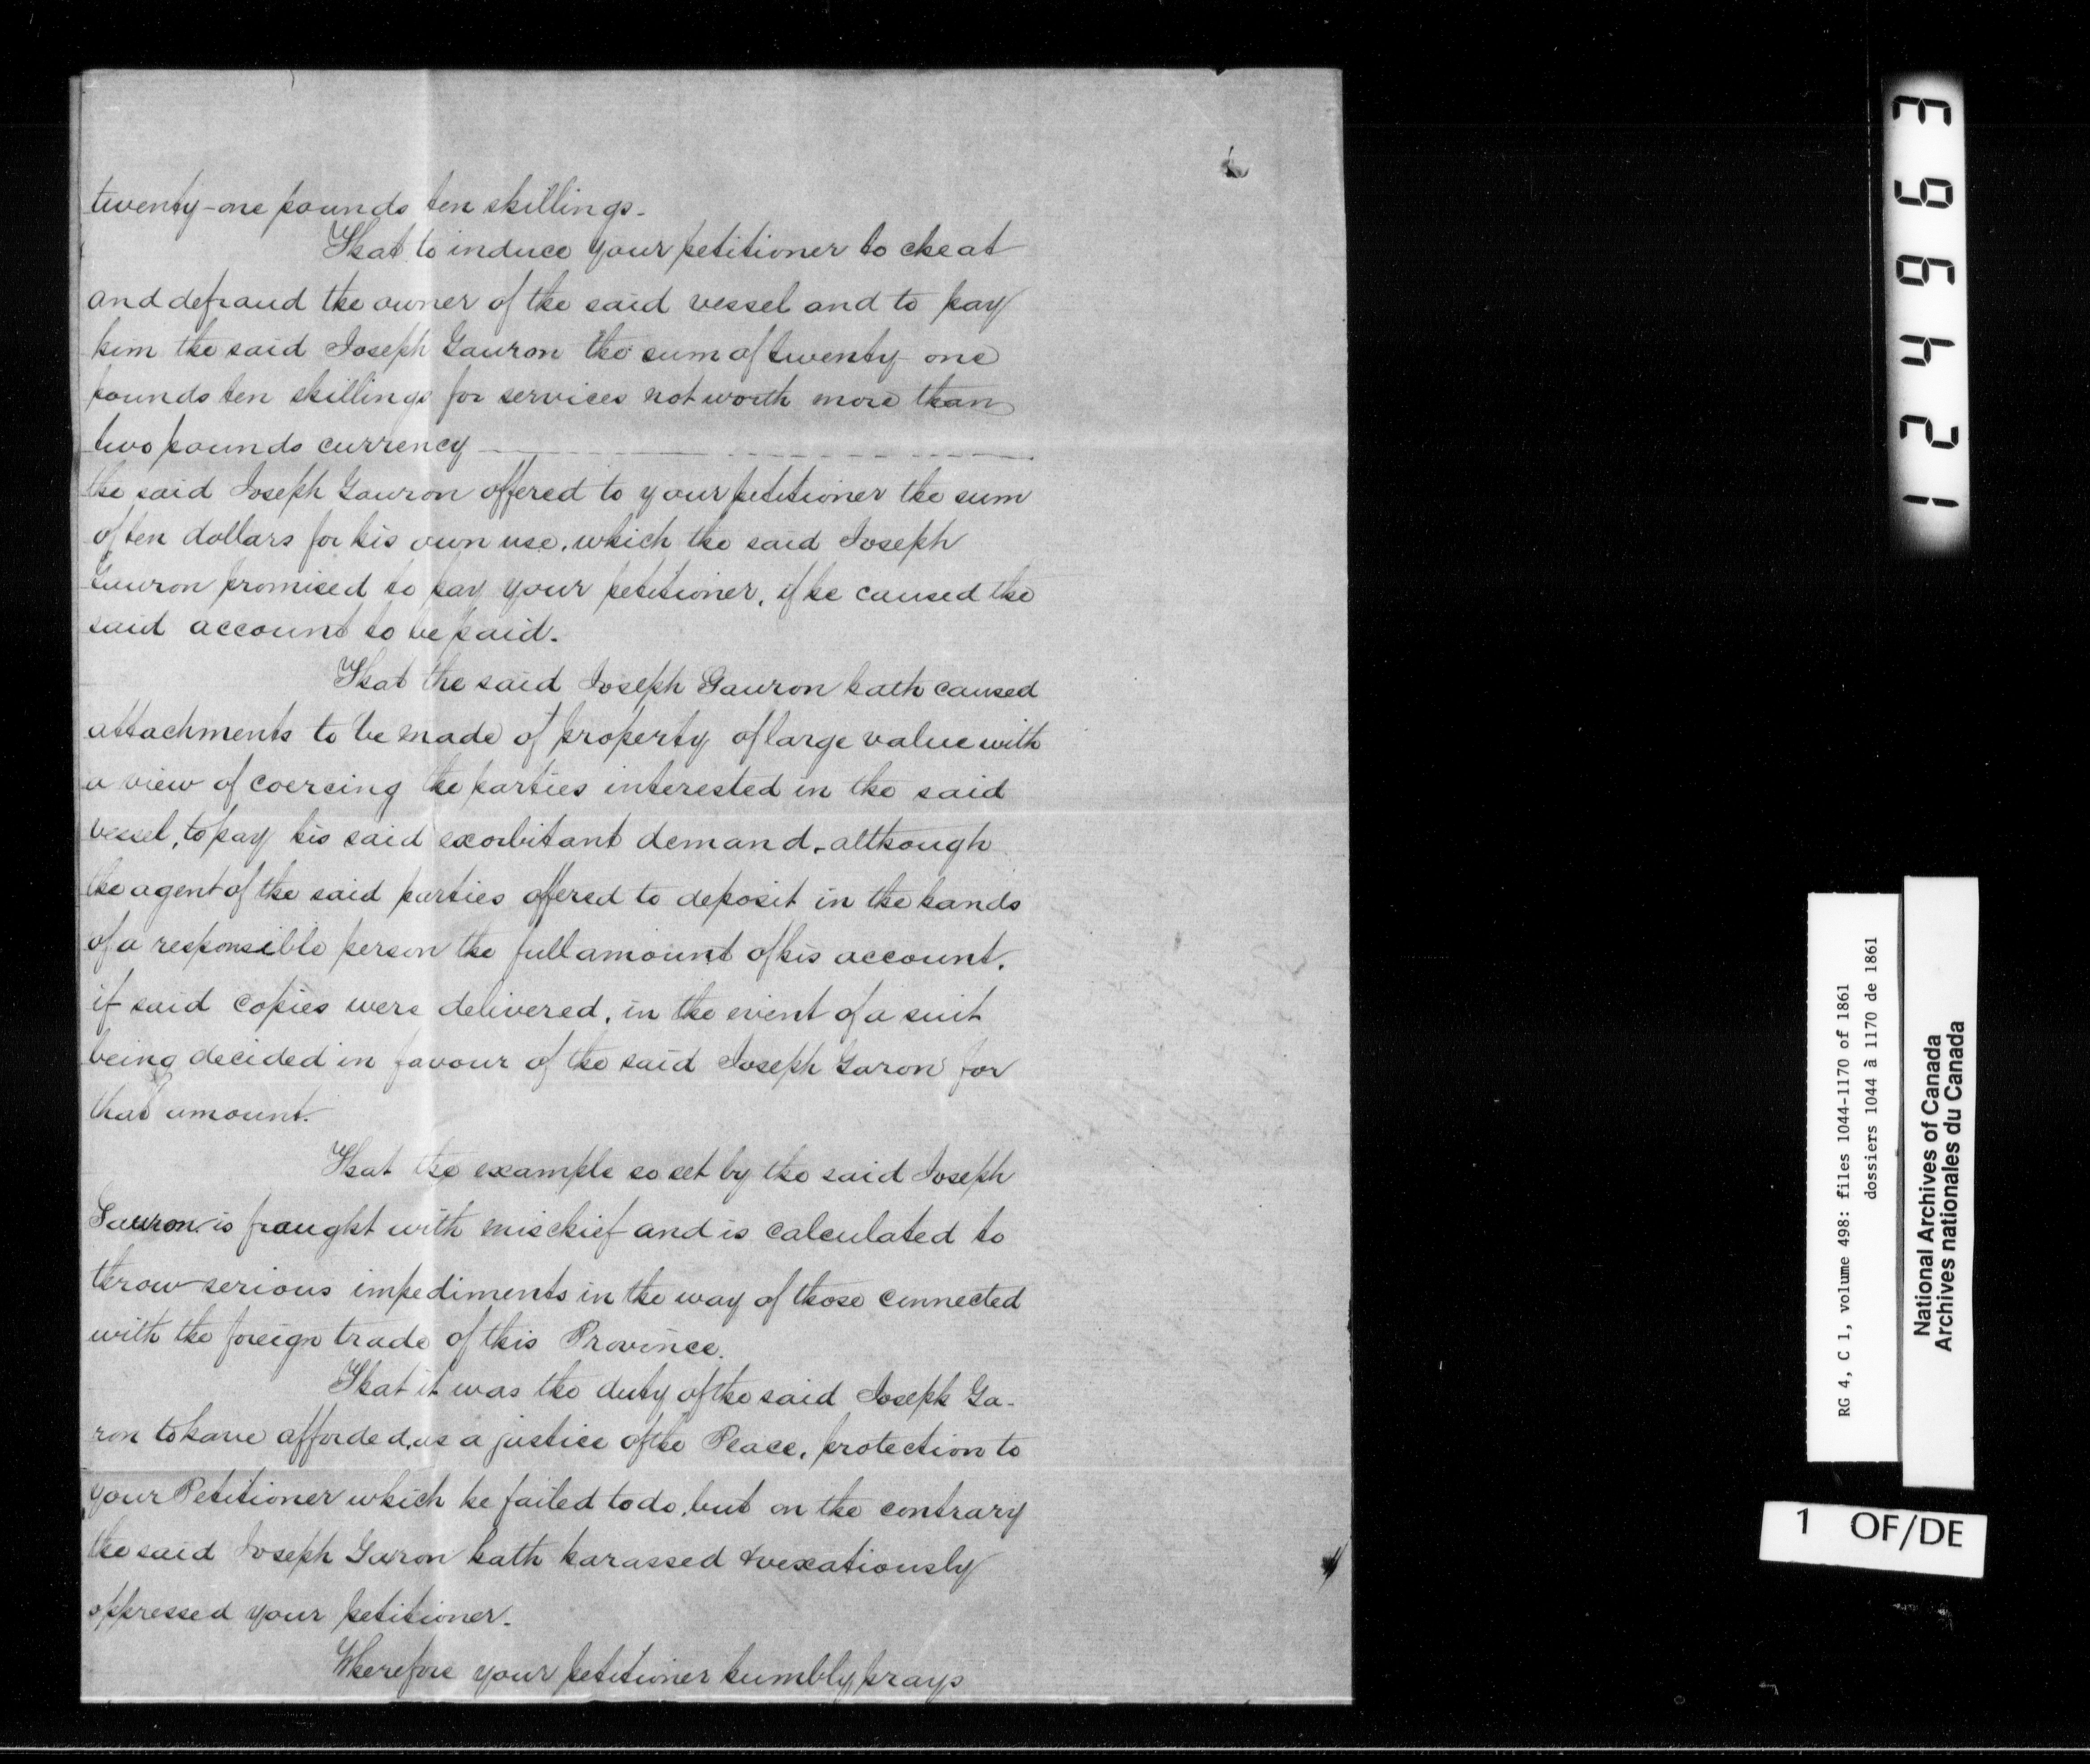 twenty-one pounds ten shillings.
That to induce your petitioner to cheat
and defraud the owner of the said vessel and to pay
him the said Joseph Gauron the sum of twenty one
pounds ten shillings for services not worth more than
two pounds currency
the said Joseph Gauron offered to your petitioner the sum
of ten dollars for his own use, which the said Joseph
Gauron promised to pay your petitioner, if he caused the
said account to be paid.
That the said Joseph Gauron hath caused
attachments to be made of property of large value with
a view of coercing the parties interested in the said
vessel, to pay his said exorbitant demand, although
the agent of the said parties offered to deposit in the hands
of a responsible person the full amount of his account,
if said copies were delivered, in the event of a suit
being decided in favour of the said Joseph Garon for
that amount.
That the example so set by the said Joseph
Gauron is fraught with mischief and is calculated to
throw serious impediments in the way of those connected
with the foreign trade of this Province.
That it was the duty of the said Joseph Ga-
ron to have afforded, as a justice of the Peace, protection to
your Petitioner which he failed to do, but on the contrary
the said Joseph Garon hath harassed & vexatiously
oppressed your petitioner.
Wherefore your petitioner humbly prays
124993
RG 4, C 1, volume 498: files 1044-1170 of 1861
dossiers 1044 à 1170 de 1861
National Archives of Canada
Archives nationales du Canada
1 OF/DE